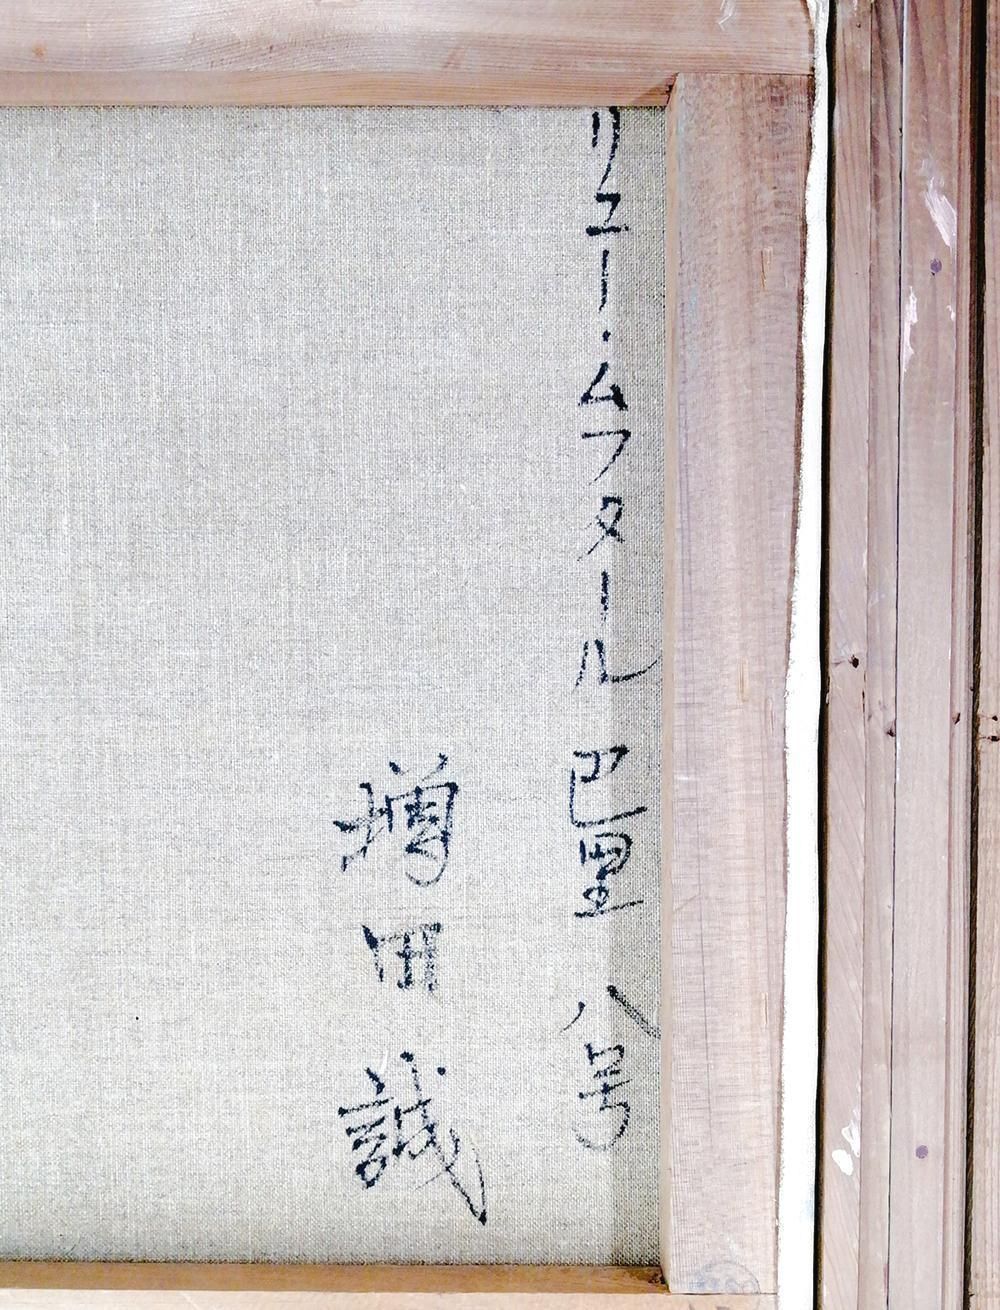 リユー・ムフタール 巴里 八号
増田誠